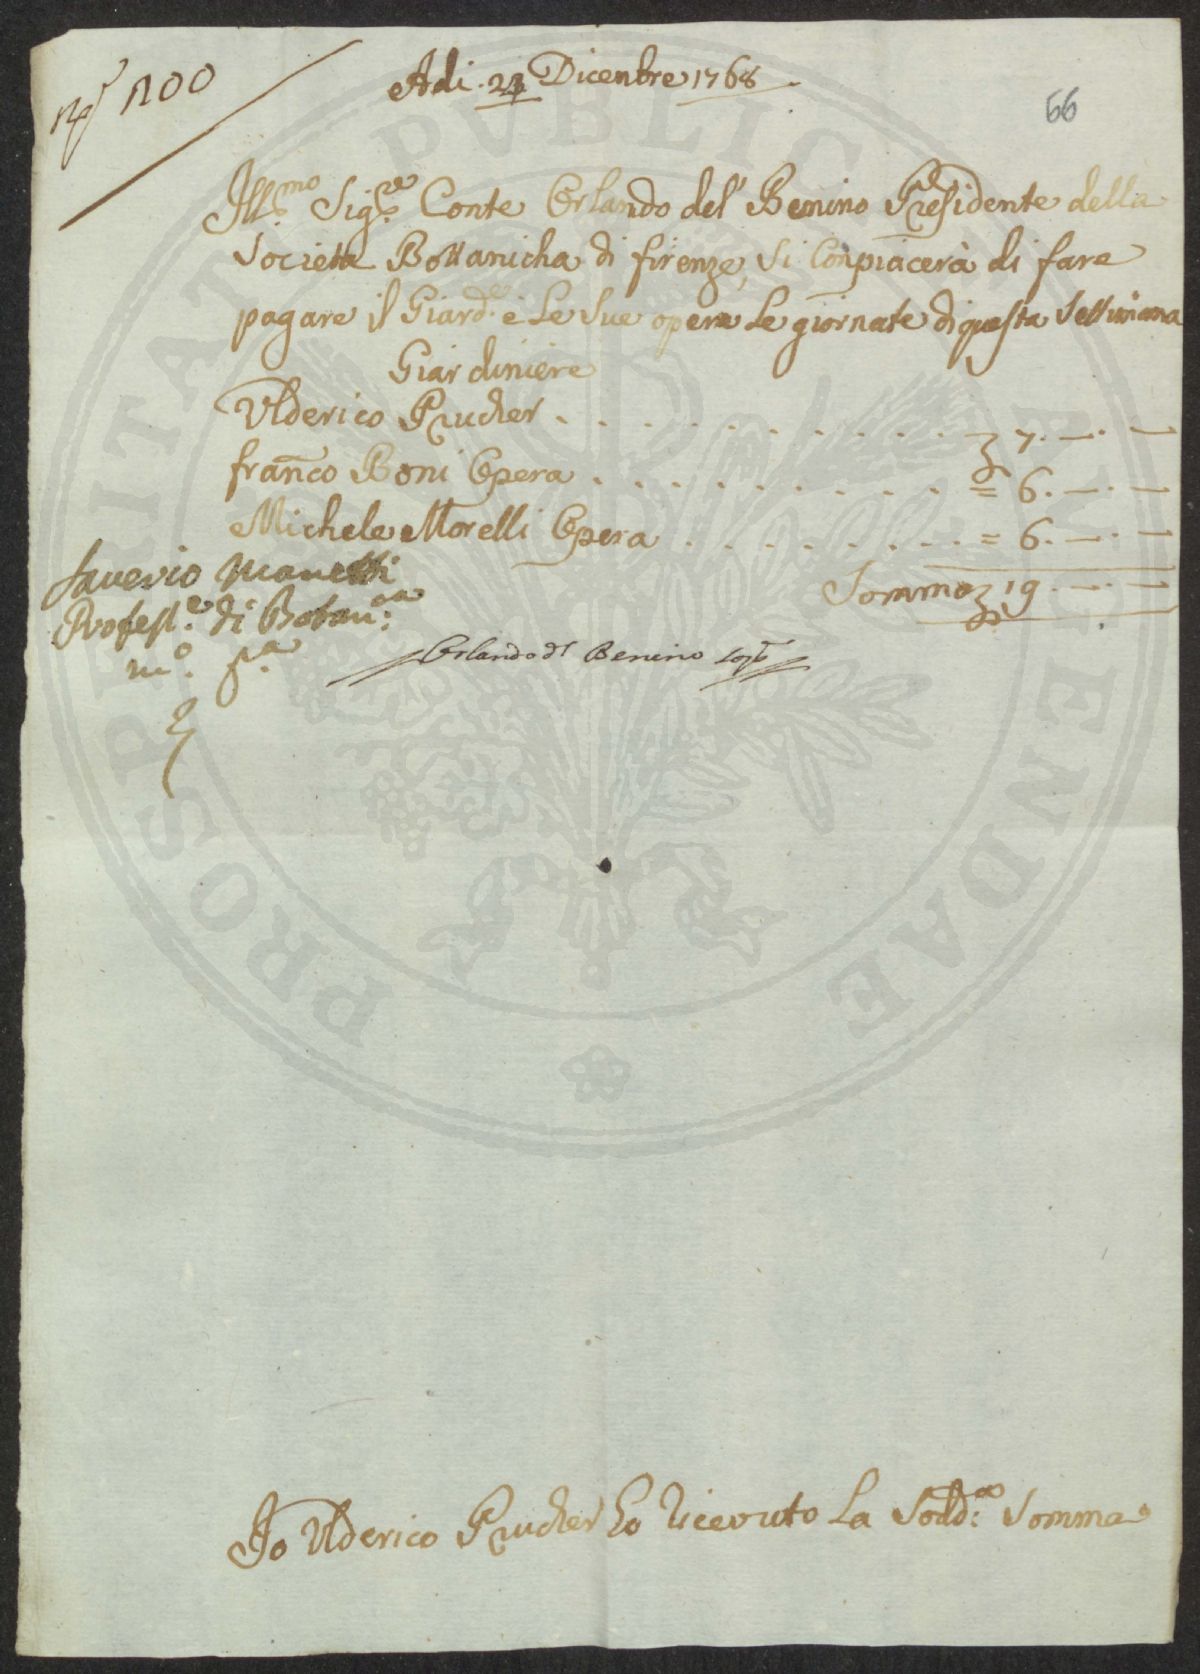 N.º 100
Adi. 24 Dicenbre 1768
66
Ill.mo Sig.re Conte Orlando del' Benino Presidente della
Società Bottanicha di firenze, Si Conpiacerà di fare
pagare il Giard.e e Le Sue opere Le giornate di questa Settimana
Giardiniere
Ulderico Prucher . . . . . . . . . . . 7. —. —
franco Boni Opera . . . . . . . . . = 6. —. —
Michele Morelli Opera . . . . . . . . = 6. —. —
Somma 19. —. —
Saverio Manetti
Profess.e di Botan.ca
m.o p.a
Orlando d.l Benino
Io Ulderico Prucher ho ricevuto La Sodd.a Somma
PROSPERITATI PVBLICAE AVGENDAE